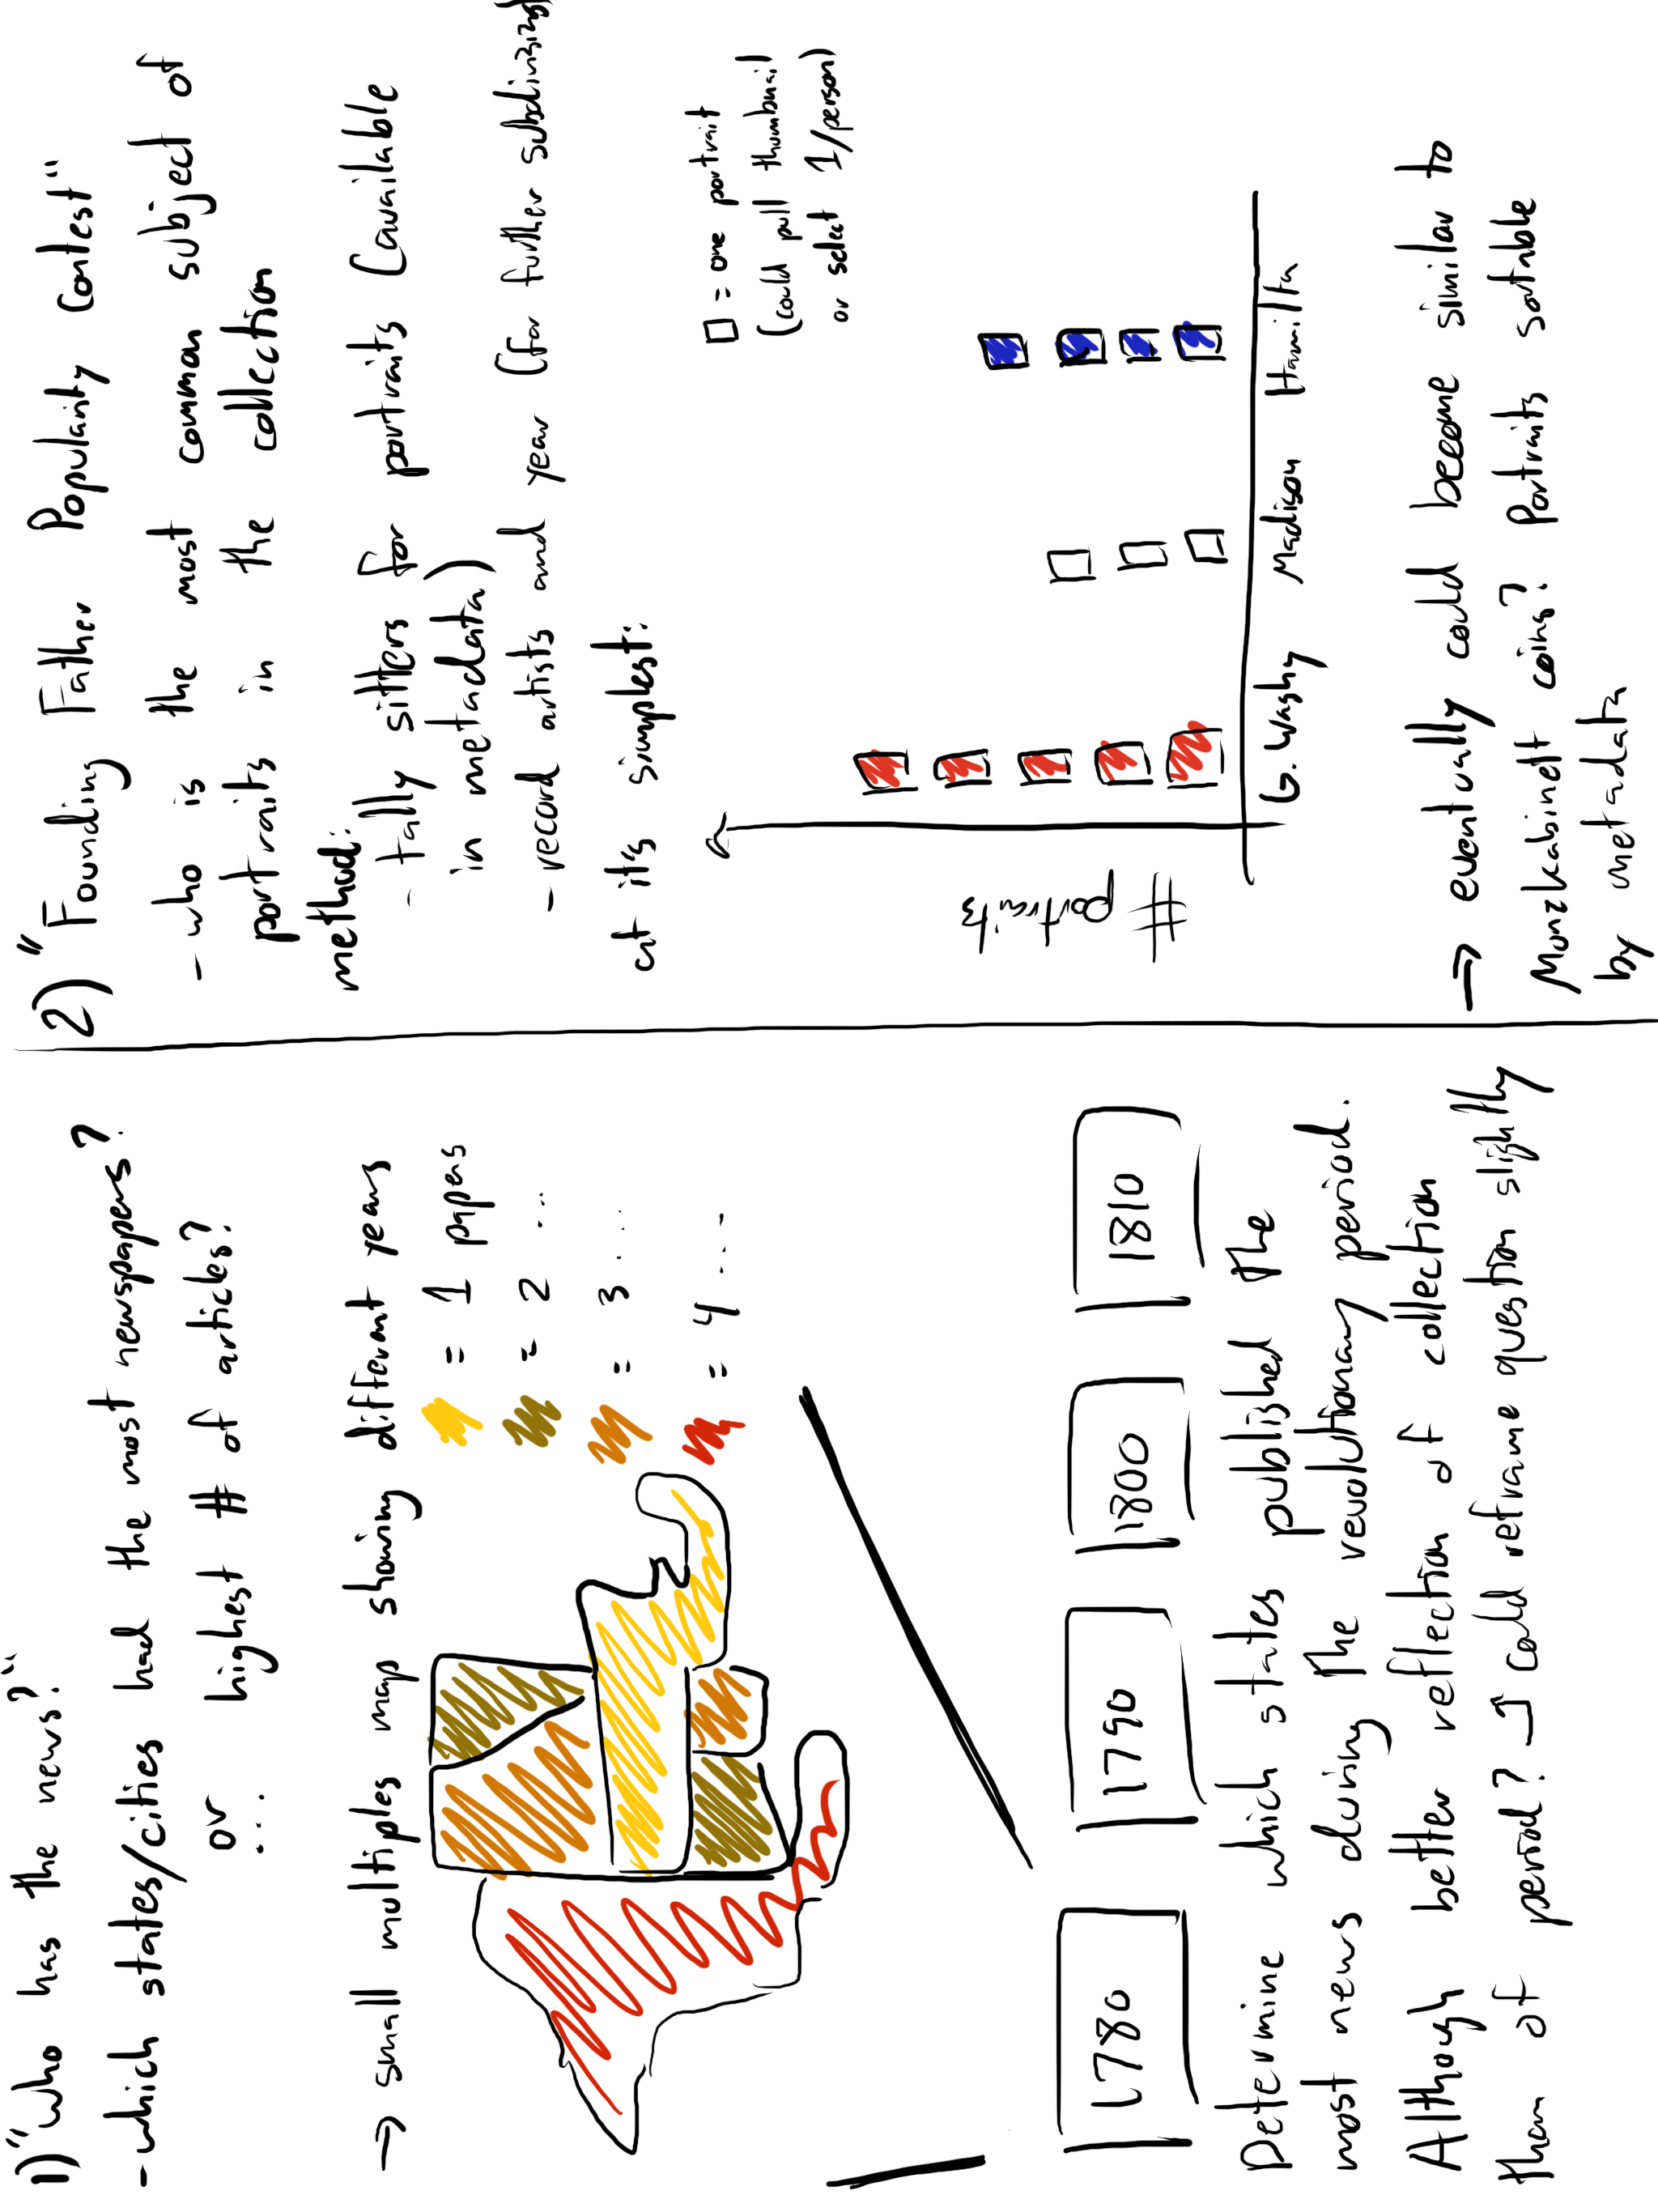 1) "who has the news?"
- which states/cities had the most newspapers?
or highest # of articles?
...
→ small multiples map showing different years
= 1 papers
= 2 ...
= 3 ....
= 4 ....
1780 1790 1800 1810
Determine which states published the
most news during the revolutionary period.
Although better reflection of collection
than of period? I could reframe question slightly
2) "Founding Father Popularity Contest"
- who is the most common subject of
portraits in the collection
method:
- tally sitters for portraits (available
in metadata)
- record artists and year (for further subdivising)
at it's simplest:
□ = one portrait
(could pull thumbnail
or select 1/person)
# portraits
G. Washy Madison Hamilton
→ eventually could become similar to
Munzkabinett coins? Portraits sortable
by metadata